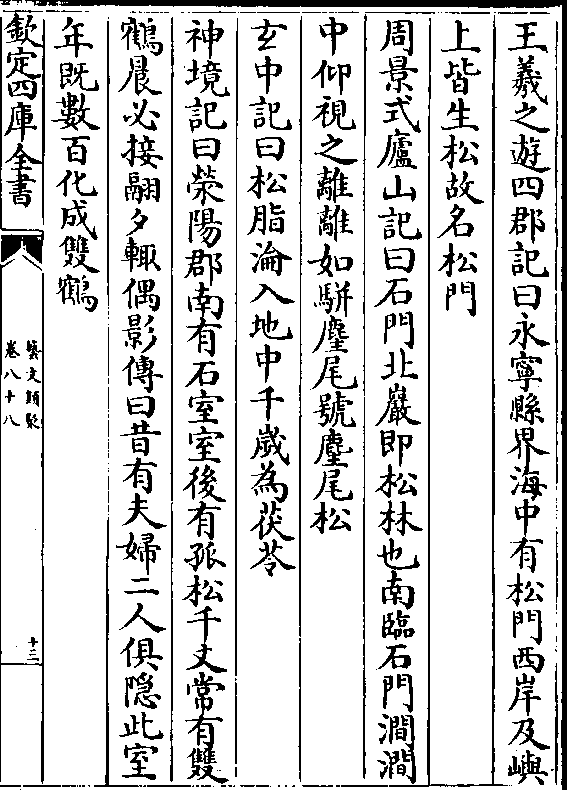 王羲之遊四郡記曰永寧縣界海中有松門西岸及嶼
上皆生松故名松門
周景式廬山記曰石門北巖即松林也南臨石門澗澗
中仰視之離離如駢麈尾號麈尾松
玄中記曰松脂淪入地中千歲為茯苓
神境記曰滎陽郡南有石室室後有孤松千丈常有雙
鶴晨必接翮夕輒偶影傳曰昔有夫婦二人俱隱此室
年既數百化成雙鶴
欽定四庫全書
藝文類聚
卷八十八
十三